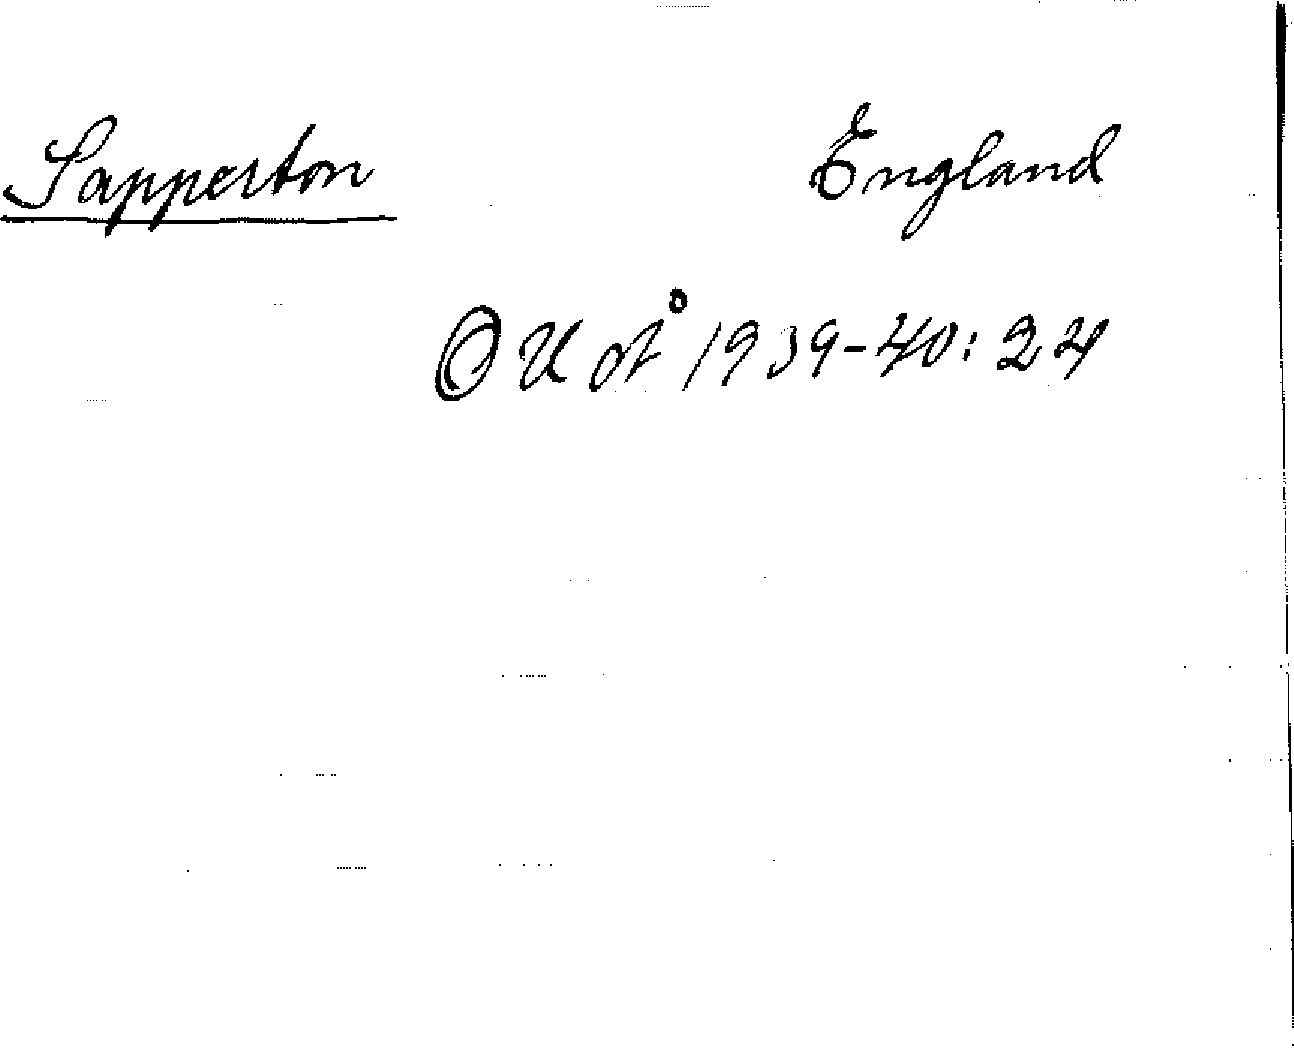 Sapperton England
1939-40: 24